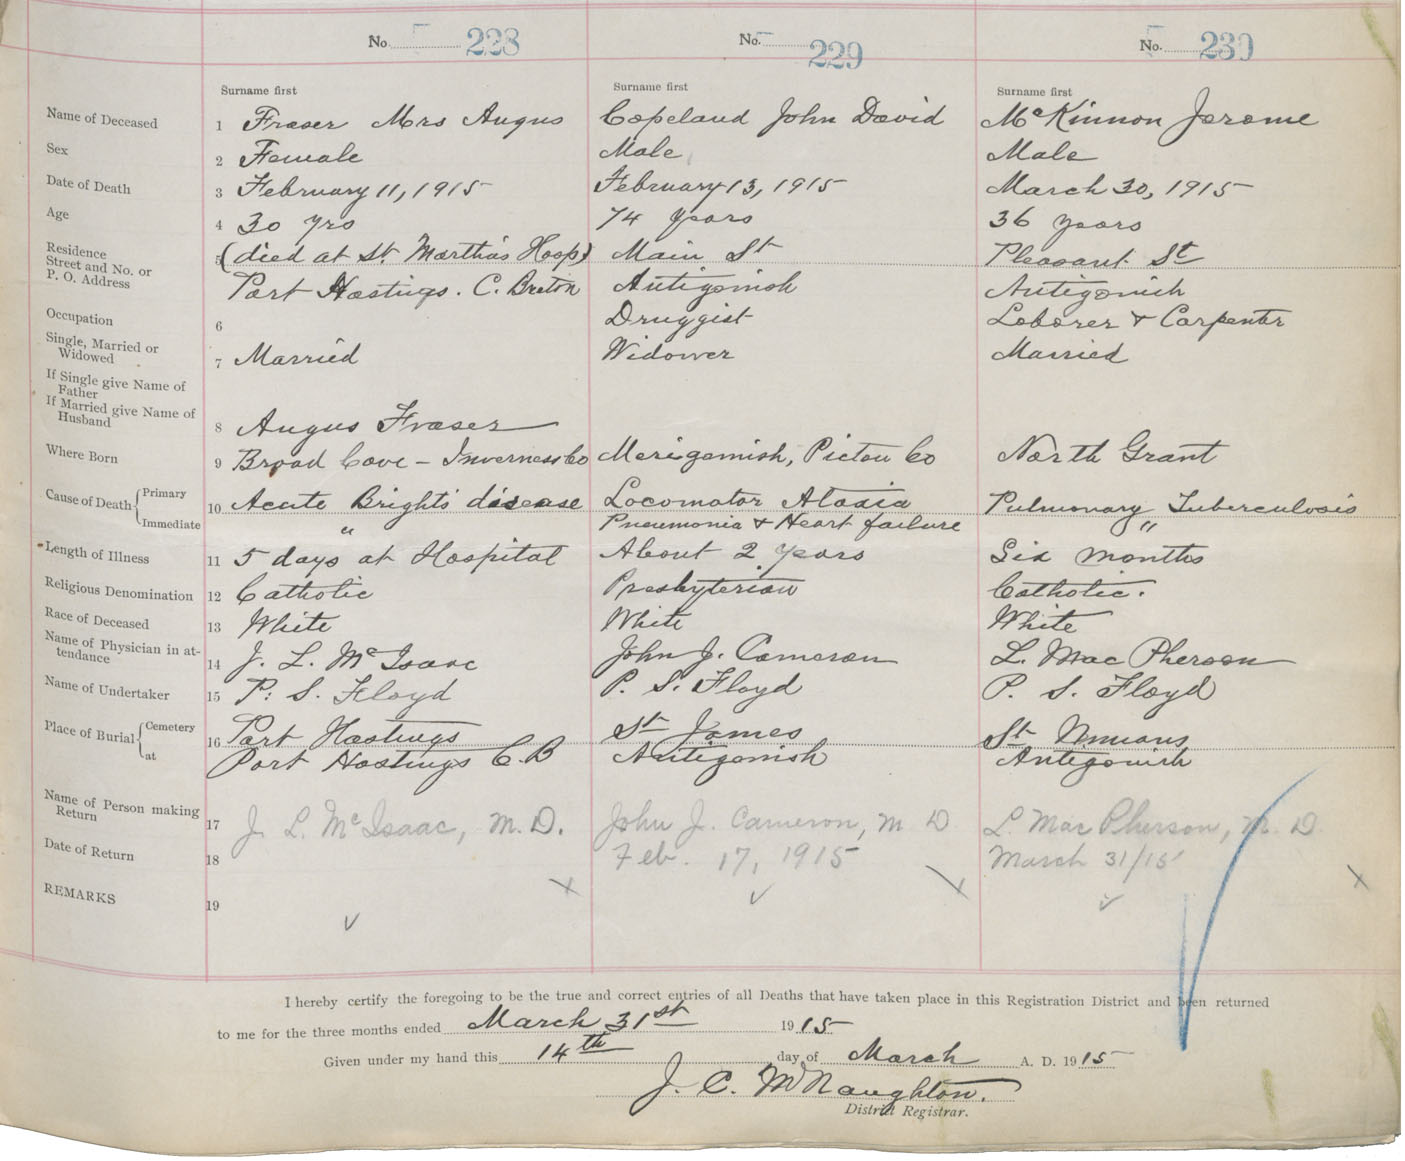 No. 228 No. 229 No. 230
Surname first Surname first Surname first
Name of Deceased 1 Fraser Mrs Angus Copeland John David McKinnon Jerome
Sex 2 Female Male Male
Date of Death 3 February 11, 1915 February 13, 1915 March 30, 1915
Age 4 30 yrs 74 years 36 years
Residence Street and No. or P. O. Address 5 (died at St. Martha's Hosp) Main St Pleasant St
Port Hastings. C. Breton Antigonish Antigonish
Occupation 6 Druggist Laborer & Carpenter
Single, Married or Widowed 7 Married Widower Married
If Single give Name of Father
If Married give Name of Husband 8 Angus Fraser
Where Born 9 Broad Cove - Inverness Co Merigomish, Pictou Co North Grant
Cause of Death { Primary 10 Acute Bright's disease Locomotor Ataxia Pulmonary Tuberculosis
Immediate " Pneumonia & Heart failure "
Length of Illness 11 5 days at Hospital About 2 years Six months
Religious Denomination 12 Catholic Presbyterian Catholic.
Race of Deceased 13 White White White
Name of Physician in attendance 14 J. L. McIsaac John J. Cameron L. MacPherson
Name of Undertaker 15 P. S. Floyd P. S. Floyd P. S. Floyd
Place of Burial { Cemetery 16 Port Hastings St James St Ninians
at Port Hastings C. B Antigonish Antigonish
Name of Person making Return 17 J. L. McIsaac, M. D. John J. Cameron, M D L. MacPherson, M. D.
Date of Return 18 Feb. 17, 1915 March 31/15
REMARKS 19
I hereby certify the foregoing to be the true and correct entries of all Deaths that have taken place in this Registration District and been returned
to me for the three months ended March 31st 1915
Given under my hand this 14th day of March A. D. 1915
J. C. McNaughton.
District Registrar.